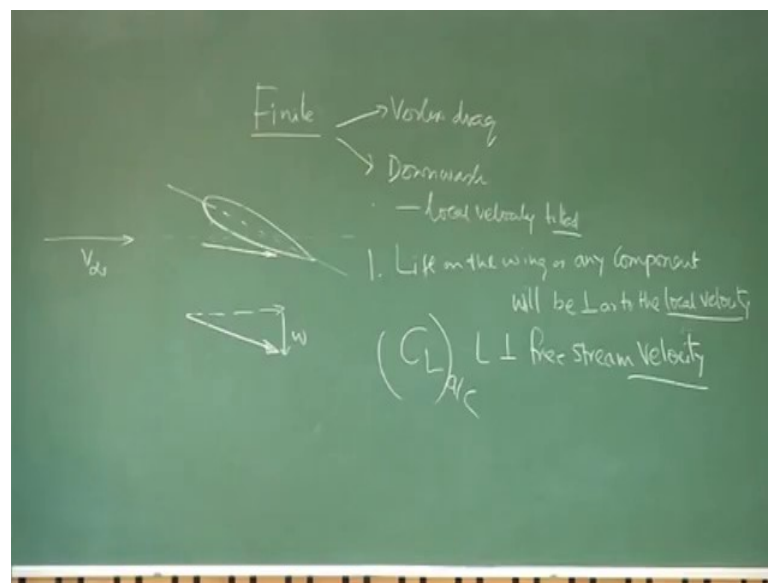 Finite
→ Vortex drag
→ Downwash
— local velocity tilted
V∞
1. Lift on the wing or any component
will be ⊥ar to the local velocity
w
(CL)A/C L ⊥ free stream velocity